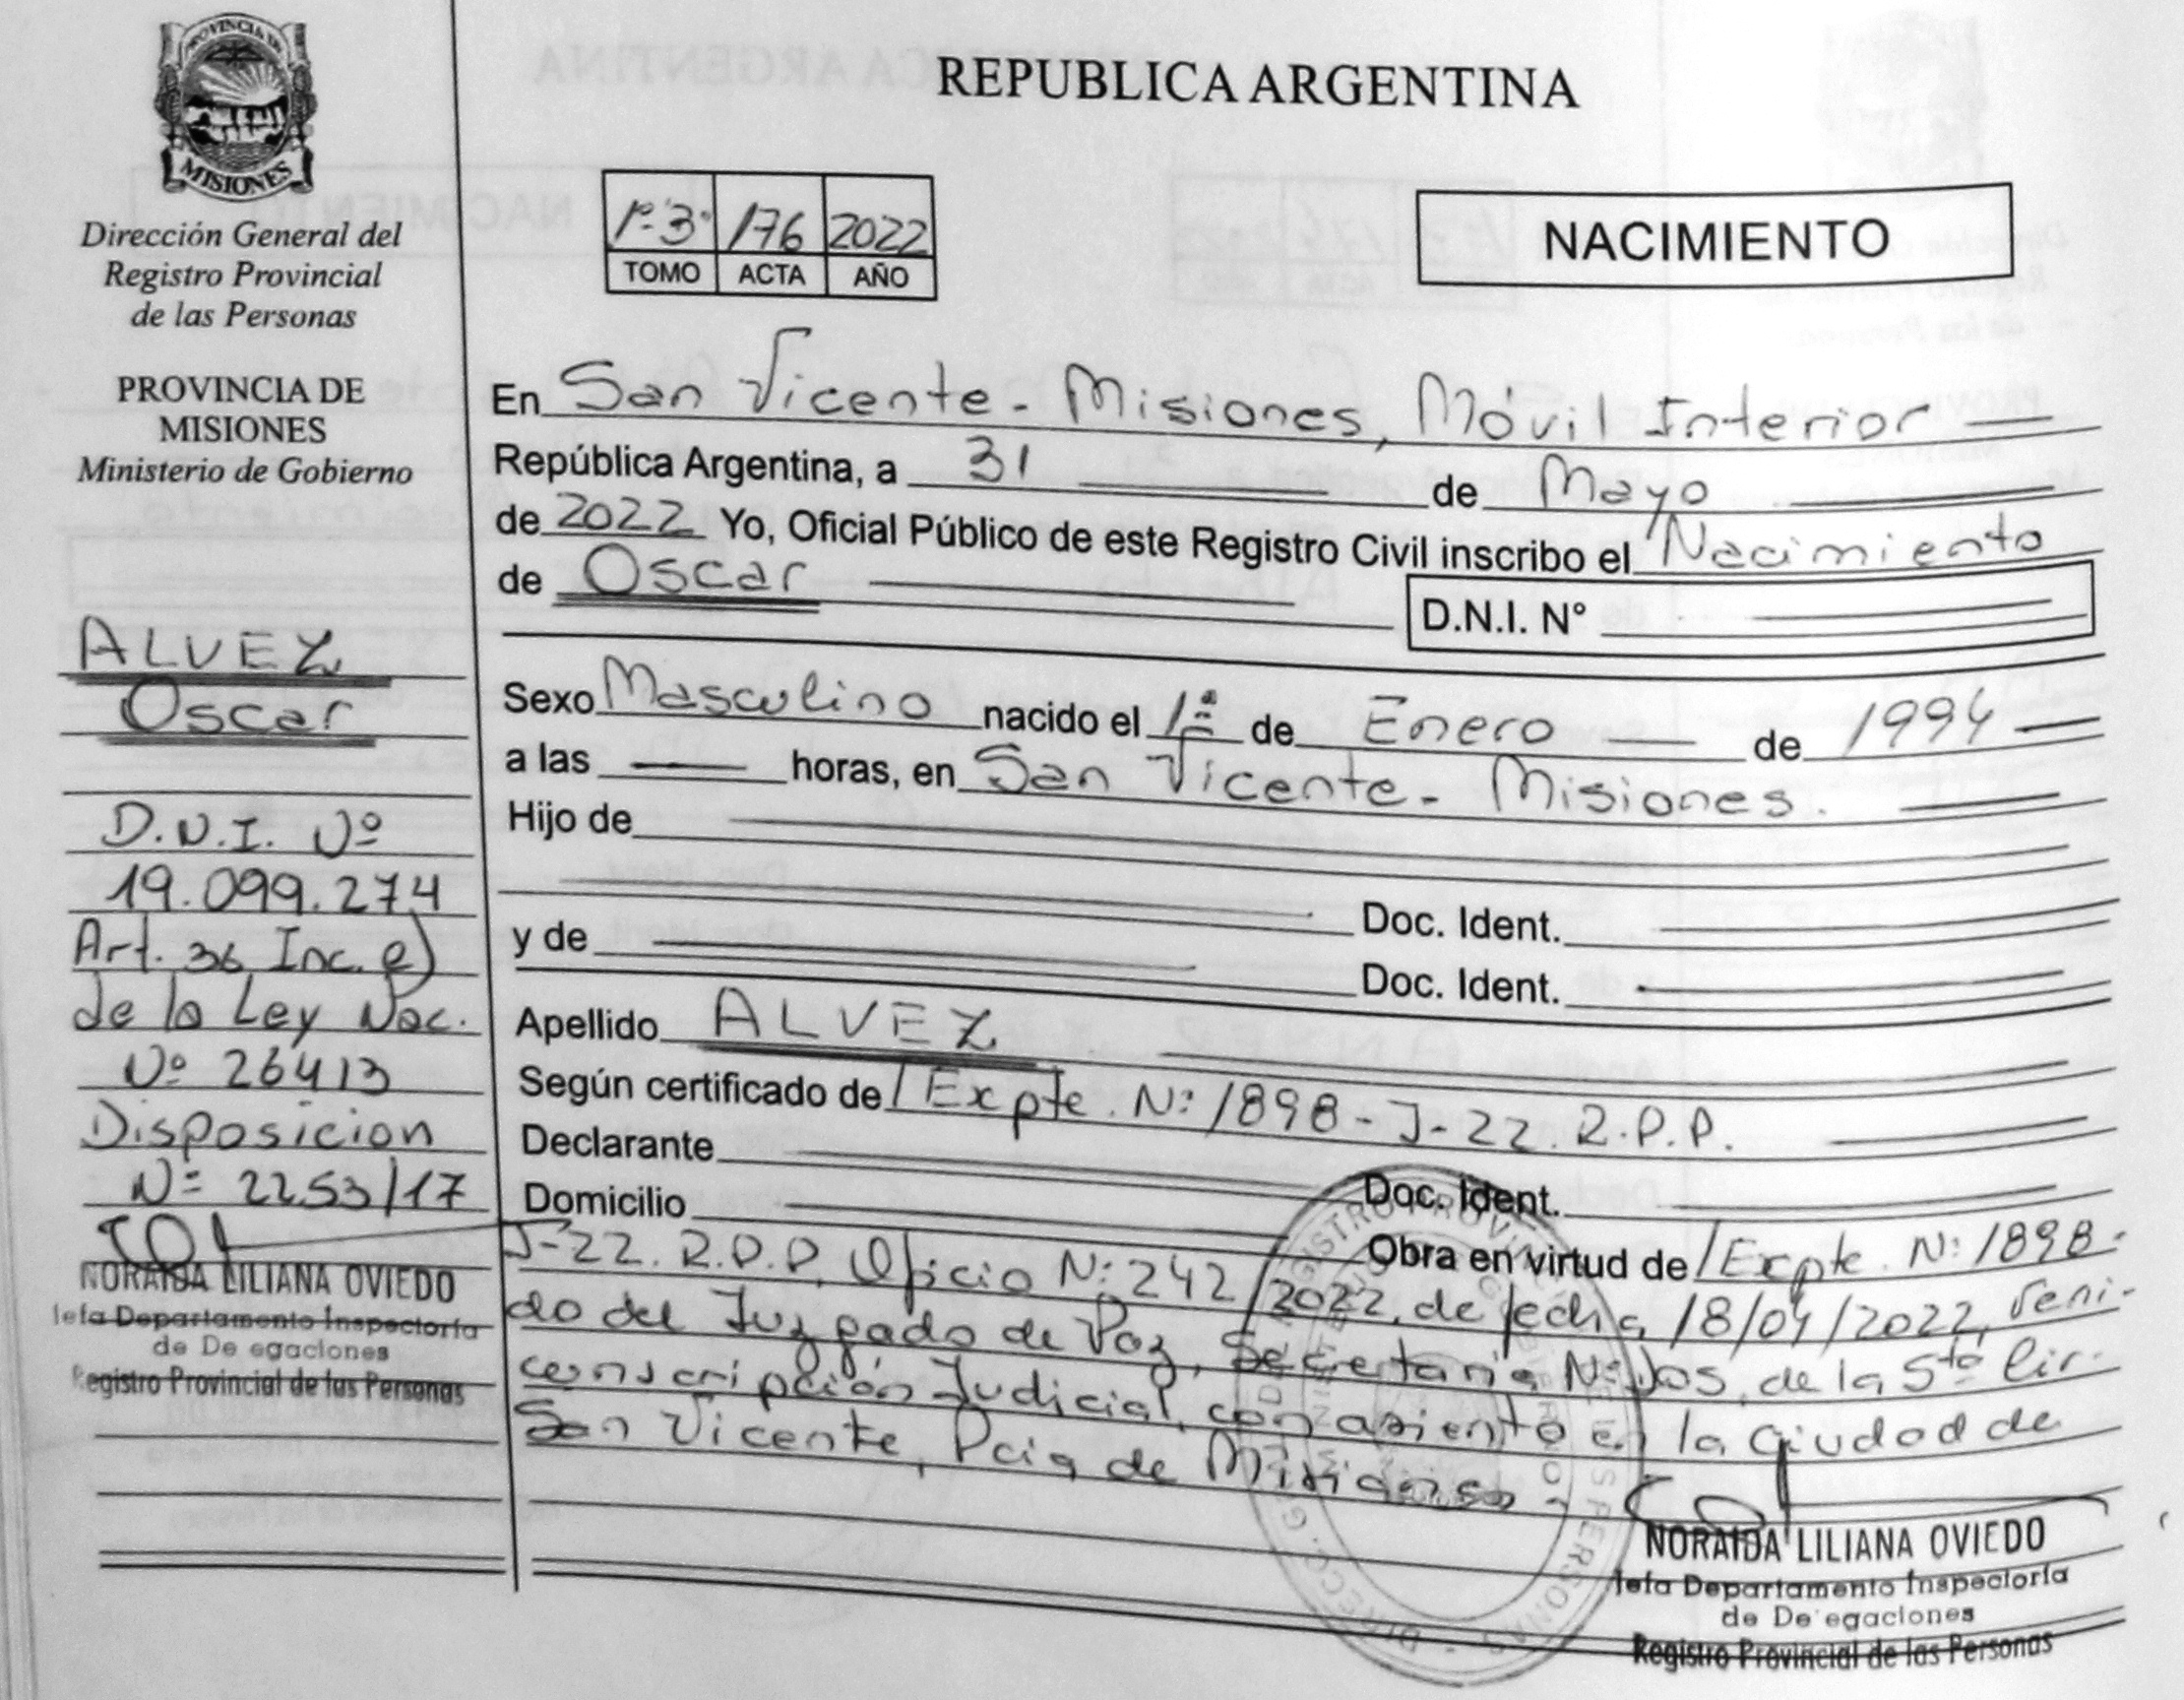 PROVINCIA DE
MISIONES
Dirección General del
Registro Provincial
de las Personas
PROVINCIA DE
MISIONES
Ministerio de Gobierno
ALVEZ
Oscar
D.N.I. Nº
19.099.274
Art. 36 Inc. e)
de la Ley Nac.
Nº 26413
Disposicion
Nº 2253/17
NORAIDA LILIANA OVIEDO
Jefa Departamento Inspectoría
de De egaciones
Registro Provincial de las Personas
REPUBLICA ARGENTINA
1º-3º 176 2022
TOMO ACTA AÑO
NACIMIENTO
En San Vicente - Misiones, Móvil Interior
República Argentina, a 31 de Mayo
de 2022 Yo, Oficial Público de este Registro Civil inscribo el Nacimiento
de Oscar
D.N.I. N°
Sexo Masculino nacido el 1º de Enero de 1994
a las horas, en San Vicente - Misiones.
Hijo de
Doc. Ident.
y de
Doc. Ident.
Apellido ALVEZ
Según certificado de Expte. Nº 1898-J-22. R.P.P.
Declarante
Doc. Ident.
Domicilio
Obra en virtud de Expte. Nº 1898-
J-22. R.P.P, Oficio Nº 242/2022, de fecha 18/04/2022, veni-
do del Juzgado de Paz, Secretaria Nº Dos, de la 5ta Cir-
cunscripción Judicial, con asiento en la Ciudad de
San Vicente, Pcia de Misiones.
NORAIDA LILIANA OVIEDO
Jefa Departamento Inspectoría
de De egaciones
Registro Provincial de las Personas